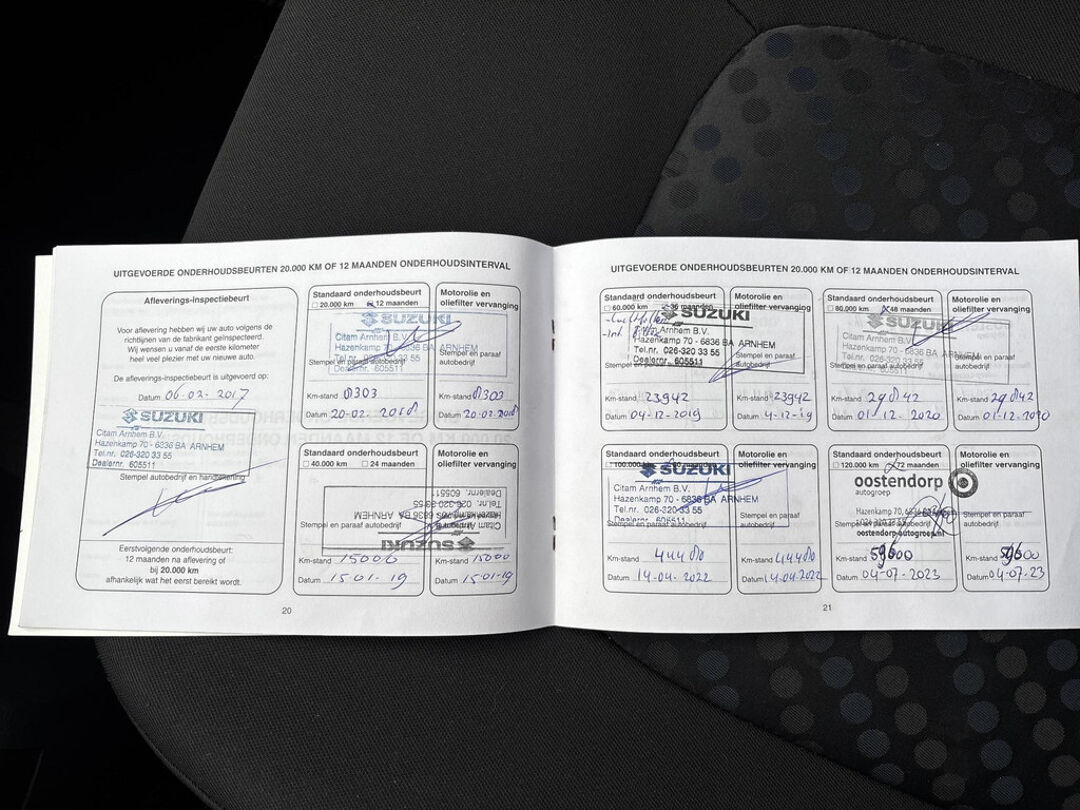 UITGEVOERDE ONDERHOUDSBEURTEN 20.000 KM OF 12 MAANDEN ONDERHOUDSINTERVAL
Afleverings-inspectiebeurt
Voor aflevering hebben wij uw auto volgens de
richtlijnen van de fabrikant geïnspecteerd.
Wij wensen u vanaf de eerste kilometer
heel veel plezier met uw nieuwe auto.
De afleverings-inspectiebeurt is uitgevoerd op:
Datum 06-02-2017
SUZUKI
Citam Arnhem B.V.
Hazenkamp 70 - 6836 BA ARNHEM
Tel.nr. 026-320 33 55
Dealernr. 605511
Stempel autobedrijf en handtekening
Eerstvolgende onderhoudsbeurt:
12 maanden na aflevering of
bij 20.000 km
afhankelijk wat het eerst bereikt wordt.
Standaard onderhoudsbeurt
20.000 km 12 maanden
SUZUKI
Citam Arnhem B.V.
Hazenkamp 70 - 6836 BA ARNHEM
Tel.nr. 026-320 33 55
Stempel en paraaf autobedrijf
Dealernr. 605511
Km-stand 8303
Datum 20-02-2018
Motorolie en
oliefilter vervanging
Stempel en paraaf
autobedrijf
Km-stand 8303
Datum 20-02-2018
Standaard onderhoudsbeurt
40.000 km 24 maanden
SUZUKI
Citam Arnhem B.V.
Hazenkamp 70 - 6836 BA ARNHEM
Tel.nr. 026-320 33 55
Dealernr. 605511
Stempel en paraaf autobedrijf
Km-stand 15000
Datum 15-01-19
Motorolie en
oliefilter vervanging
Stempel en paraaf
autobedrijf
Km-stand 15000
Datum 15-01-19
20
UITGEVOERDE ONDERHOUDSBEURTEN 20.000 KM OF 12 MAANDEN ONDERHOUDSINTERVAL
Standaard onderhoudsbeurt
60.000 km 36 maanden
SUZUKI
Citam Arnhem B.V.
Hazenkamp 70 - 6836 BA ARNHEM
Tel.nr. 026-320 33 55
Stempel en paraaf autobedrijf
Dealernr. 605511
Km-stand 23942
Datum 04-12-2019
Motorolie en
oliefilter vervanging
Stempel en paraaf
autobedrijf
Km-stand 23942
Datum 4-12-19
Standaard onderhoudsbeurt
80.000 km 48 maanden
SUZUKI
Citam Arnhem B.V.
Hazenkamp 70 - 6836 BA ARNHEM
Tel.nr. 026-320 33 55
Stempel en paraaf autobedrijf
Dealernr. 605511
Km-stand 29842
Datum 01-12-2020
Motorolie en
oliefilter vervanging
Stempel en paraaf
autobedrijf
Km-stand 29842
Datum 01-12-2020
Standaard onderhoudsbeurt
100.000 km 60 maanden
SUZUKI
Citam Arnhem B.V.
Hazenkamp 70 - 6836 BA ARNHEM
Tel.nr. 026-320 33 55
Dealernr. 605511
Stempel en paraaf autobedrijf
Km-stand 44480
Datum 14-04-2022
Motorolie en
oliefilter vervanging
Stempel en paraaf
autobedrijf
Km-stand 44480
Datum 14-04-2022
Standaard onderhoudsbeurt
120.000 km 72 maanden
oostendorp
autogroep
Hazenkamp 70, 6836 BA
Stempel en paraaf autobedrijf
026 320 33 55
oostendorp-autogroep.nl
Km-stand 59600
Datum 04-07-2023
Motorolie en
oliefilter vervanging
Stempel en paraaf
autobedrijf
Km-stand 59600
Datum 04-07-23
21